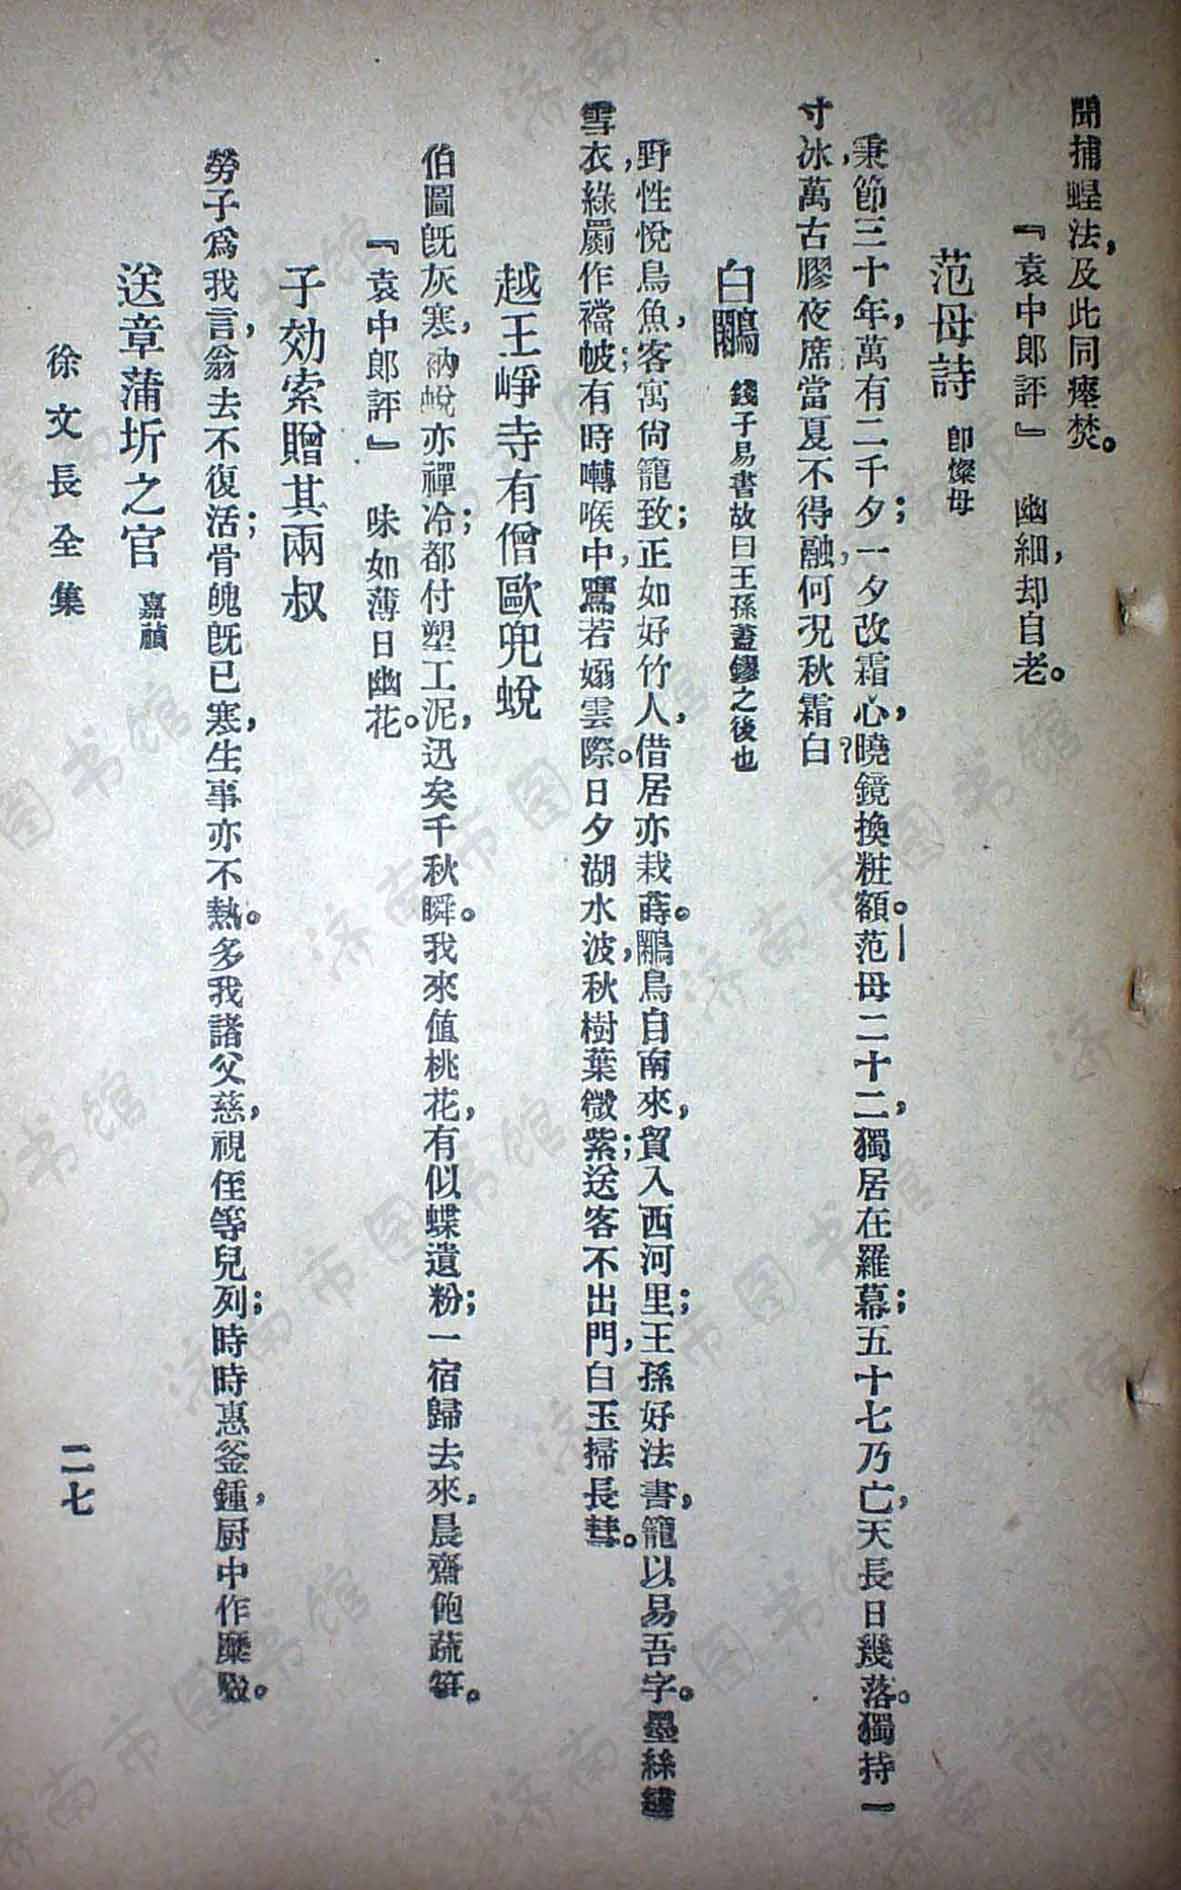 聞捕蝗法，及此同瘞焚。
『袁中郎評』　幽細，却自老。
范母詩　卽燦母
秉節三十年，萬有二千夕；一夕改霜心，曉鏡換粧額。范母二十二，獨居在羅幕；五十七乃亡，天長日幾落。獨持一
寸冰，萬古膠夜席；當夏不得融，何況秋霜白？
白鷳　錢子易書故曰王孫蓋鏐之後也
野性悅鳥魚，客寓尙籠致；正如好竹人，借居亦栽蒔。鷳鳥自南來，貿入西河里；王孫好法書，籠以易吾字。墨絲繡
雪衣，綠罽作襠帔；有時囀喉中，鷹若嫋雲際。日夕湖水波，秋樹葉微紫；送客不出門，白玉掃長彗。
越王崢寺有僧歐兜蛻
伯圖旣灰寒，衲蛻亦禪冷；都付塑工泥，迅矣千秋瞬。我來值桃花，有似蝶遺粉；一宿歸去來，晨齋飽蔬筍。
『袁中郎評』　味如薄日幽花。
子効索贈其兩叔
勞子爲我言，翁去不復活；骨魄旣已寒，生事亦不熱。多我諸父慈，視侄等兒列；時時惠釜鍾，厨中作糜餟。
送章蒲圻之官　嘉禎
徐文長全集
二七
济南市图书馆